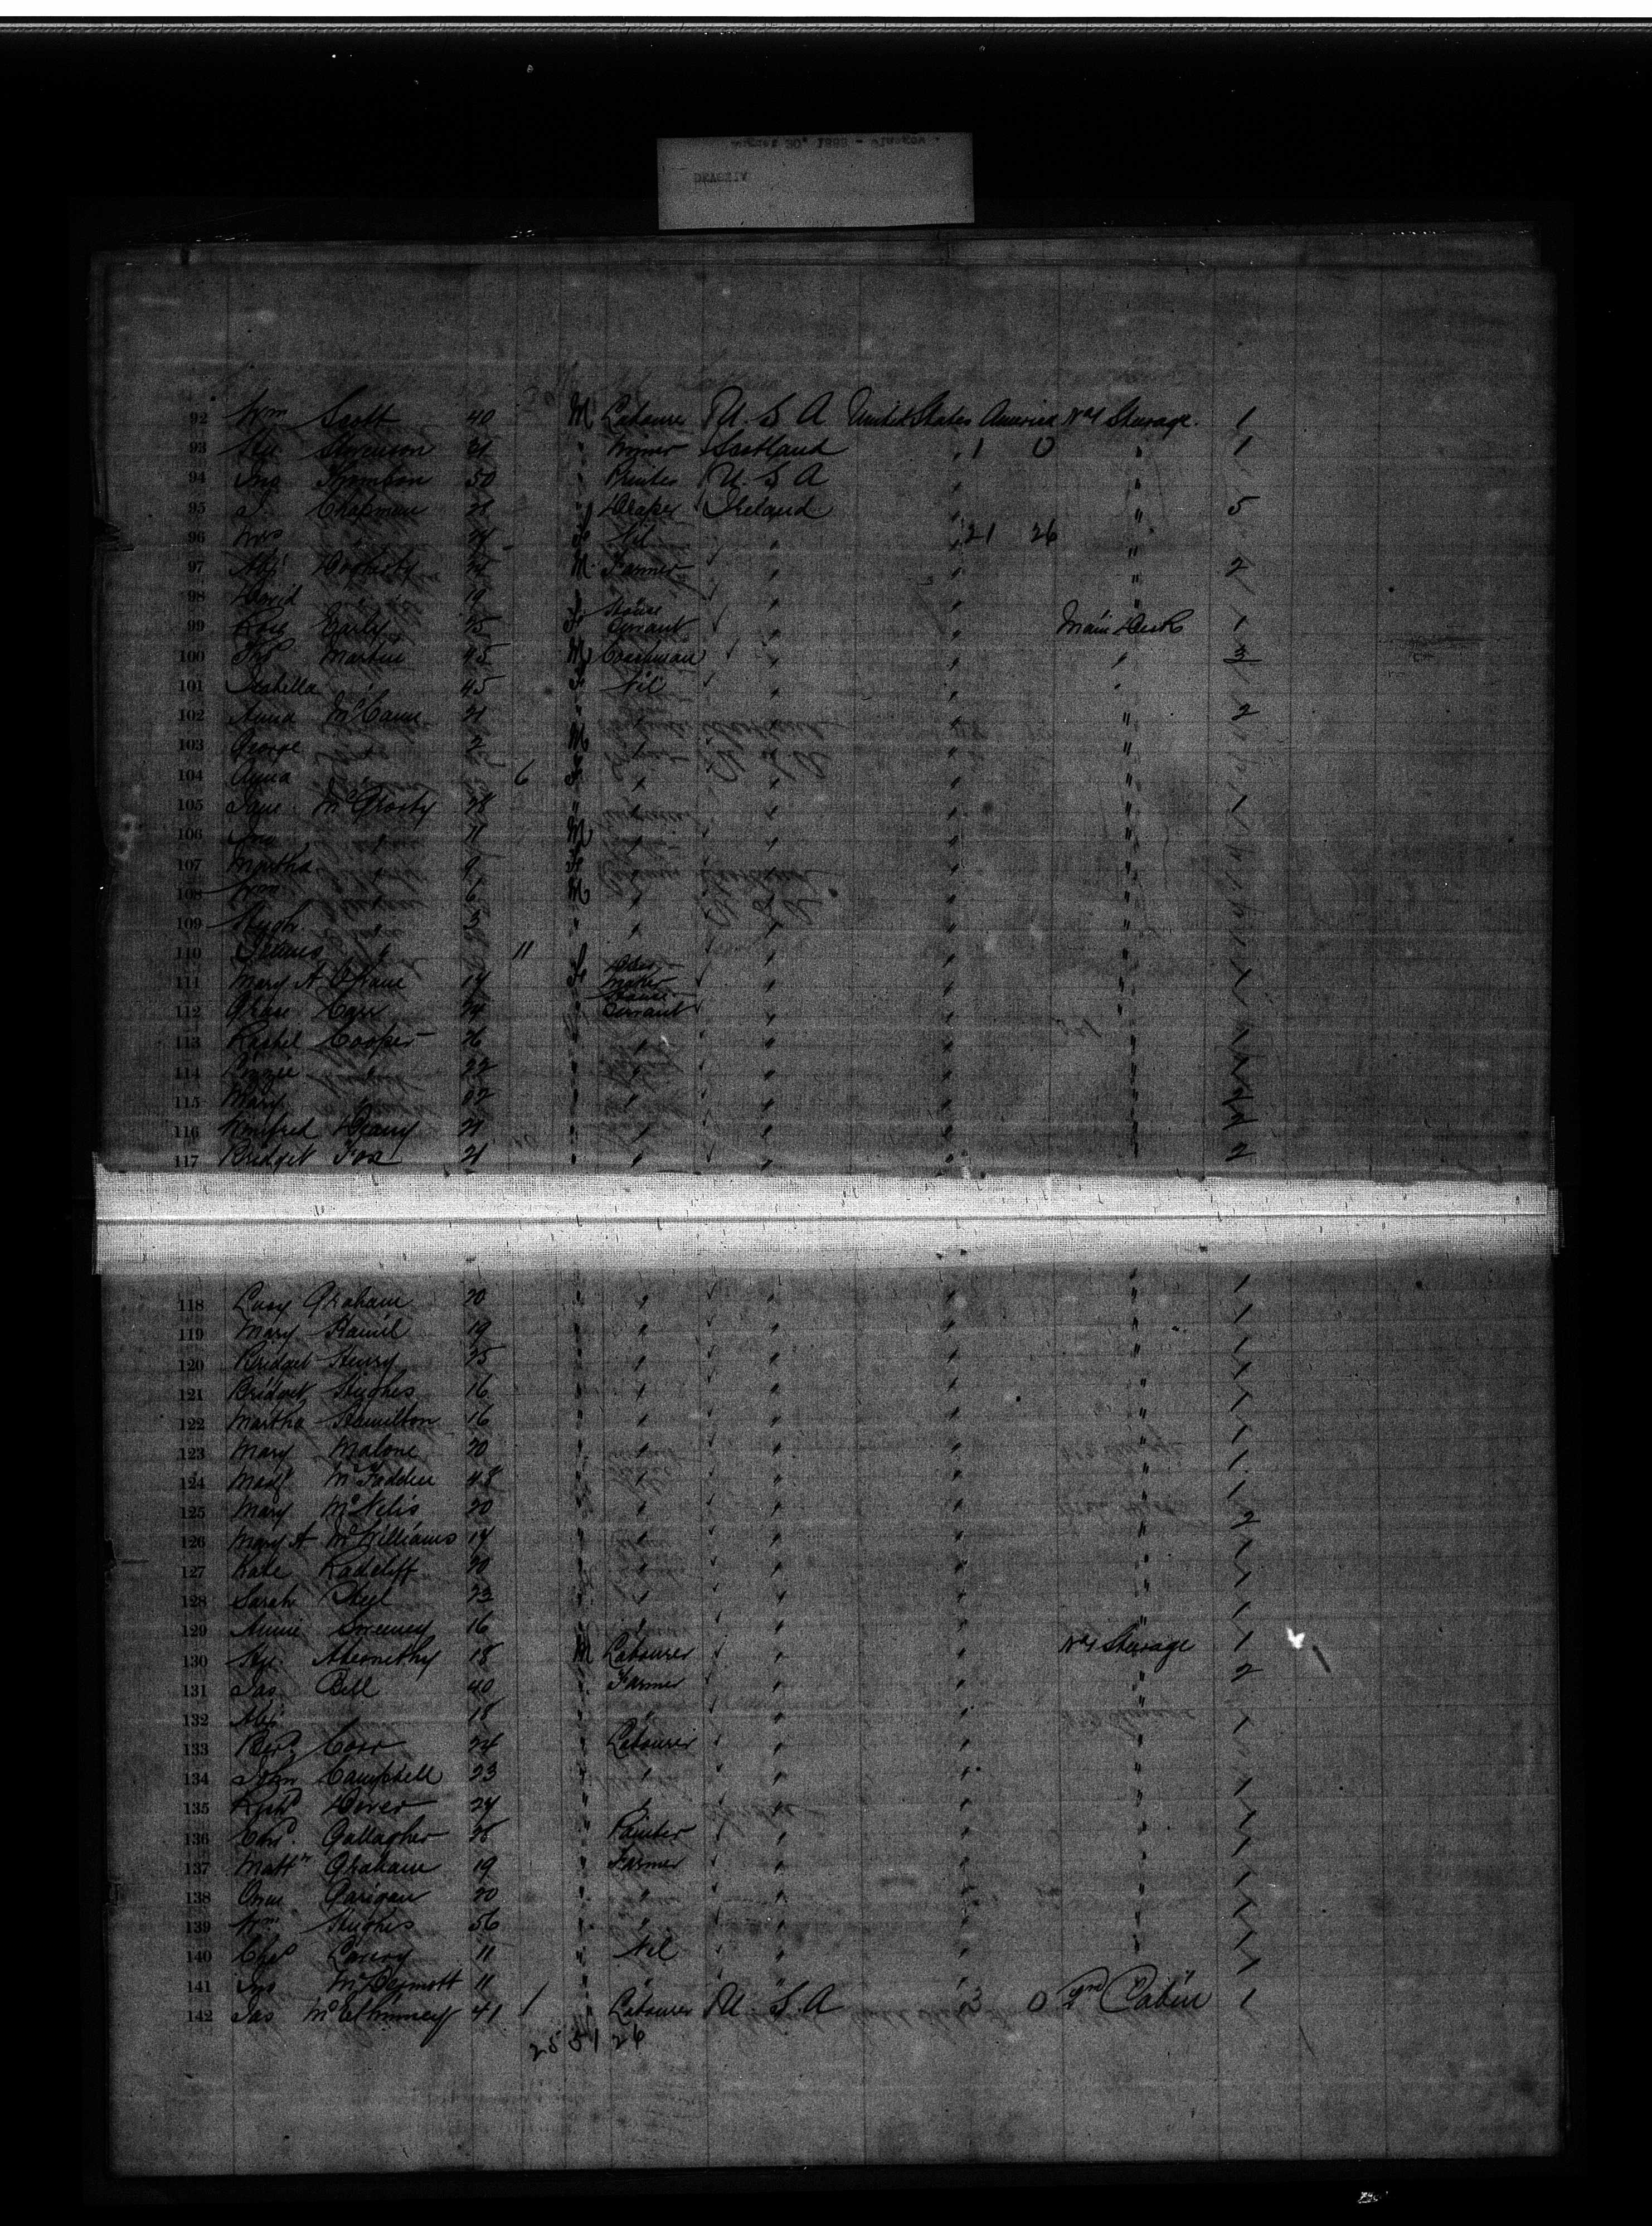 August 30, 1888 - Glasgow.
DEVONIA
92 Wm Scott 40 M Labourer U. S. A United States America No 1 Steerage. 1
93 Hy. Stevenson 21 " Scotland " 1 0 " 1
94 Jno 50 " Printer U. S. A " "
95 J. Chapman 28 " Draper Ireland " " 5
96 Mrs " F Nil " " 21 26 "
97 Alx Dogherty M Farmer " " " 2
98 David " 19 " " " "
99 Rose Early 25 F House Servant " " Main Deck 1
100 Thos Martin 45 M Coachman " " " 3
101 Isabella " 45 F Nil " " "
102 Anna McCann 21 " " " " " 2
103 George " 2 M " " " "
104 Anna " 6 F " " " "
105 Jane 28 " " " " " 1
106 Jno " 11 M " " " "
107 Martha " 9 F " " " "
108 Wm " 6 M " " " "
109 Hugh " 3 " " " " "
110 James " 11 " " " " "
111 Mary A O'Kane 17 F Dress maker " " " 1
112 Grace Carr 24 " House Servant " " "
113 Rachel Cooper 26 " " " " " 1
114 Lizzie " 22 " " " " " 1
115 Mary " " " " " " 2
116 Winifred Deany 21 " " " " "
117 Bridget Fox 21 " " " " " 2
118 Lucy Graham 20 " " " " " 1
119 Mary Hamil 19 " " " " " 1
120 Bridget Henry 25 " " " " " 1
121 Bridget Hughes 16 " " " " " 1
122 Martha Hamilton 16 " " " " " 1
123 Mary Malone 20 " " " " " 1
124 Madge McFadden 48 " " " " " 1
125 Mary McNelis 20 " " " " " 1
126 Mary A McWilliams 17 " " " " " 2
127 Kate Radcliff 20 " " " " " 1
128 Sarah Steel 23 " " " " " 1
129 Annie Sweeney 16 " " " " " 1
130 Hy. Abernethy 18 M Labourer " " No 1 Steerage 1
131 Jas Bell 40 " Farmer " " " 2
132 Alx. " 18 " " " " "
133 Corr 24 " Labourer " " " 1
134 John Campbell 23 " " " " "
135 Richd Dever 24 " " " " " 1
136 Edw. Gallagher 28 " Painter " " " 1
137 Matthw Graham 19 " Farmer " " " 1
138 Owen Garigan 20 " " " " " 1
139 Wm Hughes 56 " " " " " 1
140 Chas Lavery 11 " Nil " " " 1
141 Jno McDermott 11 " " " " " 1
142 Jas McElhinney 41 1 " Labourer U. S. A " 3 0 2nd Cabin 1
25 51 26